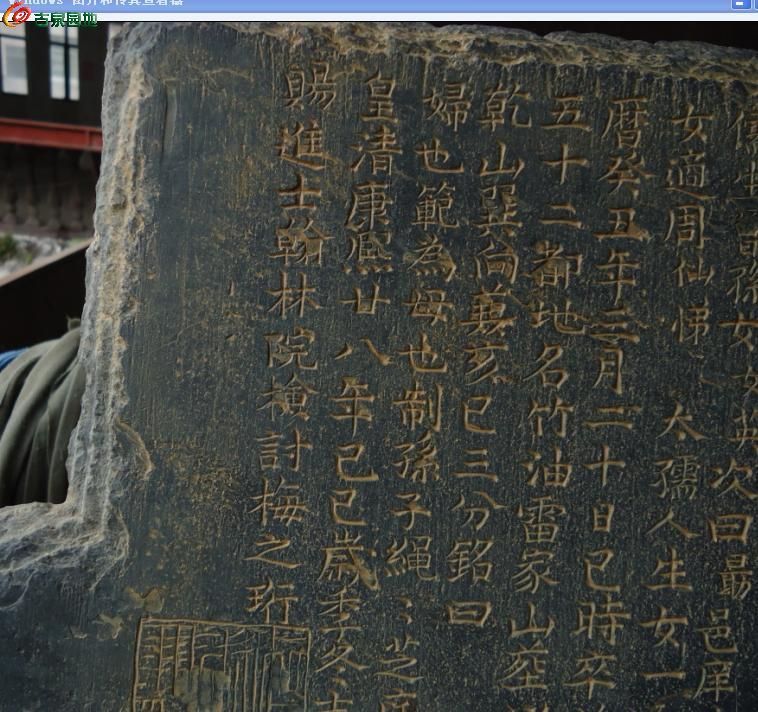 吉泉园地
女適周仙悌 太孺人生女一
曆癸丑年三月二十日巳時卒
五十二都地名竹油雷家山塋
乾山巽向兼亥巳三分銘曰
婦也範為母也制孫子繩〻芝
皇清康熙廿八年己巳歲季冬
賜進士翰林院檢討梅之珩